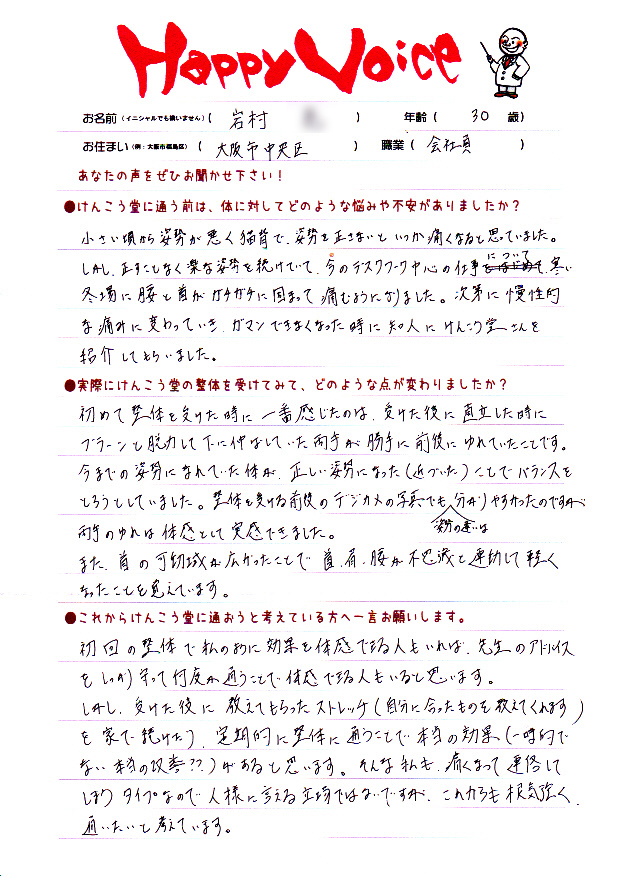 Happy Voice
お名前(イニシャルでも構いません)( 岩村 ) 年齢( 30 歳)
お住まい(例:大阪市福島区)( 大阪市中央区 ) 職業( 会社員 )
あなたの声をぜひお聞かせ下さい!
●けんこう堂に通う前は、体に対してどのような悩みや不安がありましたか?
小さい頃から姿勢が悪く猫背で、姿勢を正さないといつか痛くなると思っていました。
しかし、正すことなく楽な姿勢を続けていて、今のデスクワーク中心の仕事について、寒い
冬場に腰と首がガチガチに固まって痛むようになりました。次第に慢性的
な痛みに変わっていき、ガマンできなくなった時に知人にけんこう堂さんを
紹介してもらいました。
●実際にけんこう堂の整体を受けてみて、どのような点が変わりましたか?
初めて整体を受けた時に一番感じたのは、受けた後に直立した時に
ブラーンと脱力して下に伸ばしていた両手が勝手に前後にゆれていたことです。
今までの姿勢になれていた体が、正しい姿勢になった(近づいた)ことでバランスを
とろうとしていました。整体を受ける前後のデジカメの写真でも姿勢の違いは分かりやすかったのですが
両手のゆれは体感として実感できました。
また、首の可動域が広がったことで首、肩、腰が不思議と連動して軽く
なったことを覚えています。
●これからけんこう堂に通おうと考えている方へ一言お願いします。
初回の整体で私のように効果を体感できる人もいれば、先生のアドバイス
をしっかり守って何度か通うことで体感できる人もいると思います。
しかし、受けた後に教えてもらったストレッチ(自分に合ったものを教えてくれます)
を家で続けたり、定期的に整体に通うことで本当の効果(一時的で
ない本当の改善??)があると思います。そんな私も、痛くなって連絡して
しまうタイプなので人様に言える立場ではないですが、これからも根気強く
通いたいと考えています。